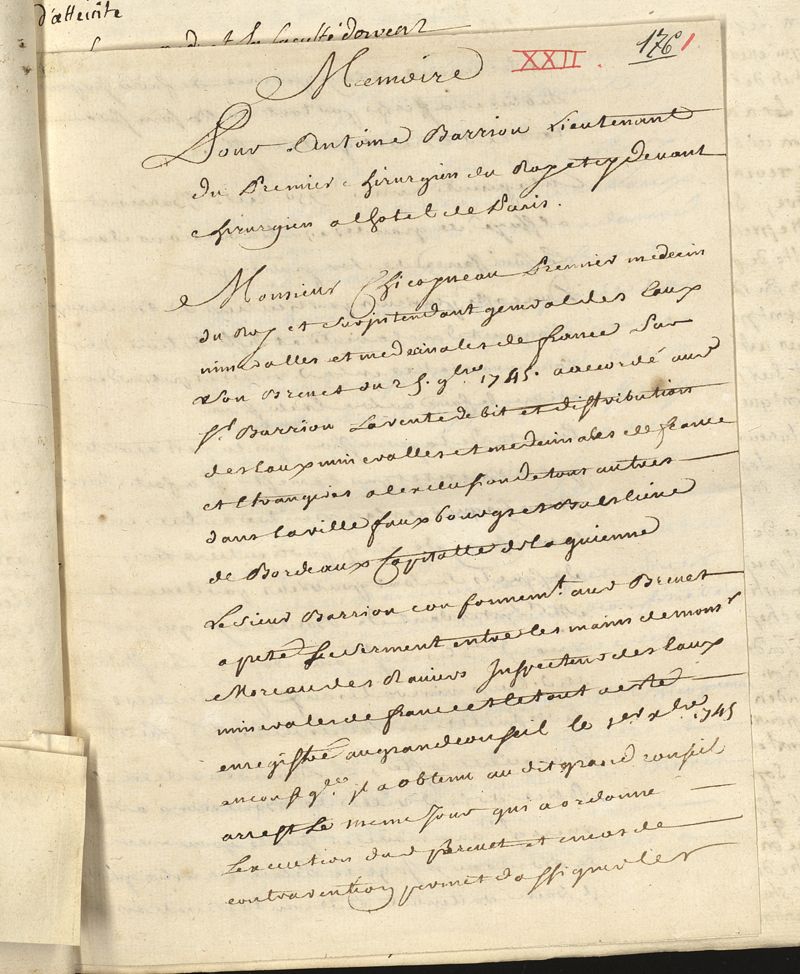 d'atteinte
la faculté
XXII. 176 1
Memoire
Pour Antoine Barriou Lieutenant
du Premier chirurgien du Roy et cy devant
chirurgien a lhotel de Paris.
Monsieur Chicoyneau Premier medecin
du Roy et Surjntendant general des Eaux
mineralles et medecinales de france Par
son Brevet du 25. 9bre 1745. a accordé aud
Sr. Barriou La vente debit et distribution
des Eaux mineralles et medecinales de france
et Etrangeres a lexclusion de tous autres
dans la ville fauxbourgs et Banlieüe
de Bordeaux Capitalle de la guienne
Le Sieur Barriou conformemt. aud Brevet
a preté le serment entre les mains de monsr
Moreau des Raviers Jnspecteur des Eaux
minerales de france et le tout a esté
enregistré au grand conseil le 1er. xbre 1745
en conseqce jl a obtenu au dit grand conseil
arrest Le meme Jour qui a ordonné
Lexecution dud Brevet et en cas de
contravention permet d'assigner les